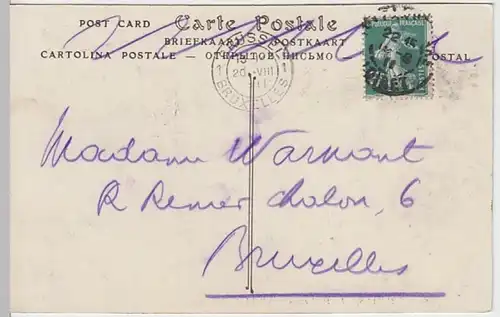 POST CARD Carte Postale
BRIEFKAART POSTKAART
CARTOLINA POSTALE — ОТКРЫТОЕ ПИСЬМО POSTAL
BRUSSEL
20 VIII
1 1
BRUXELLES
22
Madame Warmont
R Remer Chalon, 6
Bruxelles